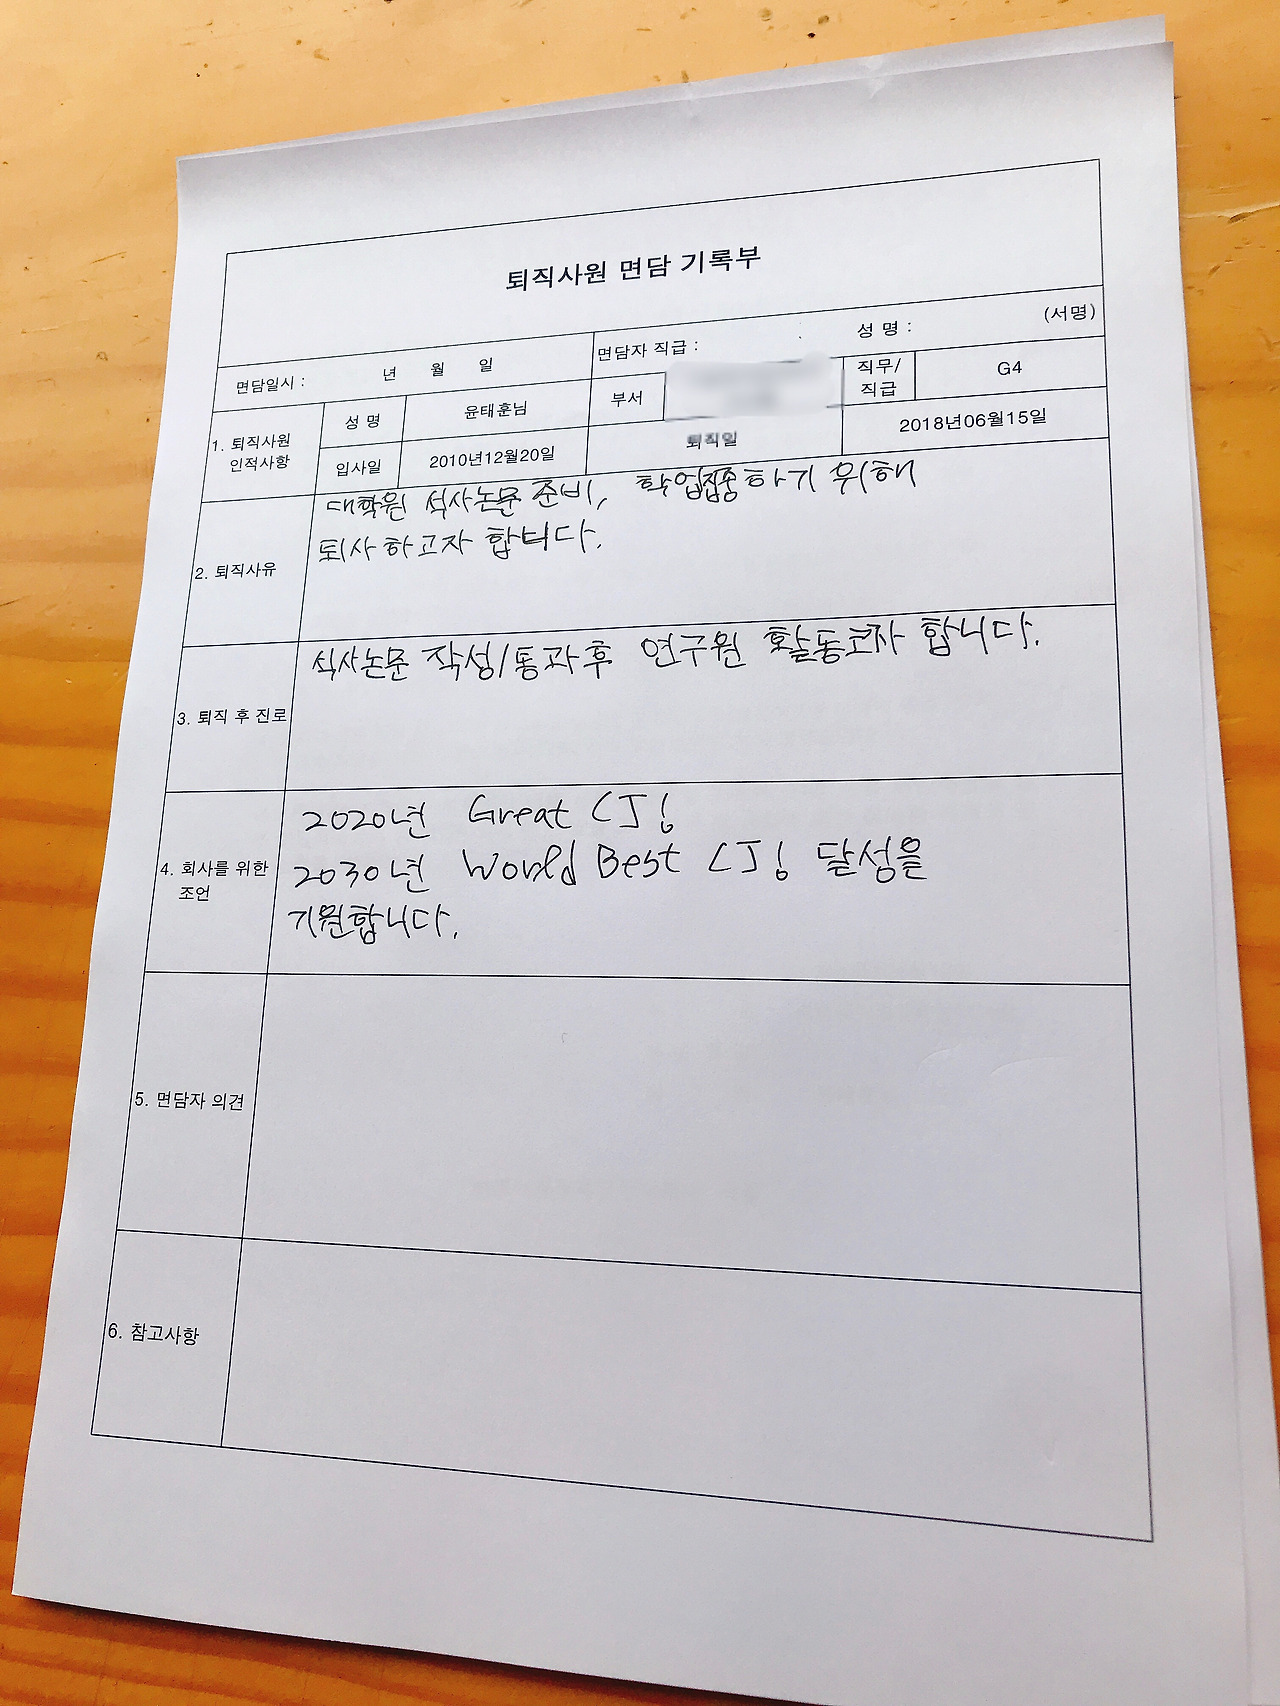 퇴직사원 면담 기록부
면담일시 : 년 월 일 면담자 직급 : 성 명 : (서명)
1. 퇴직사원 인적사항
성 명 윤태훈님 부서 직무/직급 G4
입사일 2010년12월20일 퇴직일 2018년06월15일
2. 퇴직사유
대학원 석사논문 준비, 학업집중하기 위해
퇴사하고자 합니다.
3. 퇴직 후 진로
석사논문 작성/통과후 연구원 활동코자 합니다.
4. 회사를 위한
조언
2020년 Great CJ!
2030년 World Best CJ! 달성을
기원합니다.
5. 면담자 의견
6. 참고사항